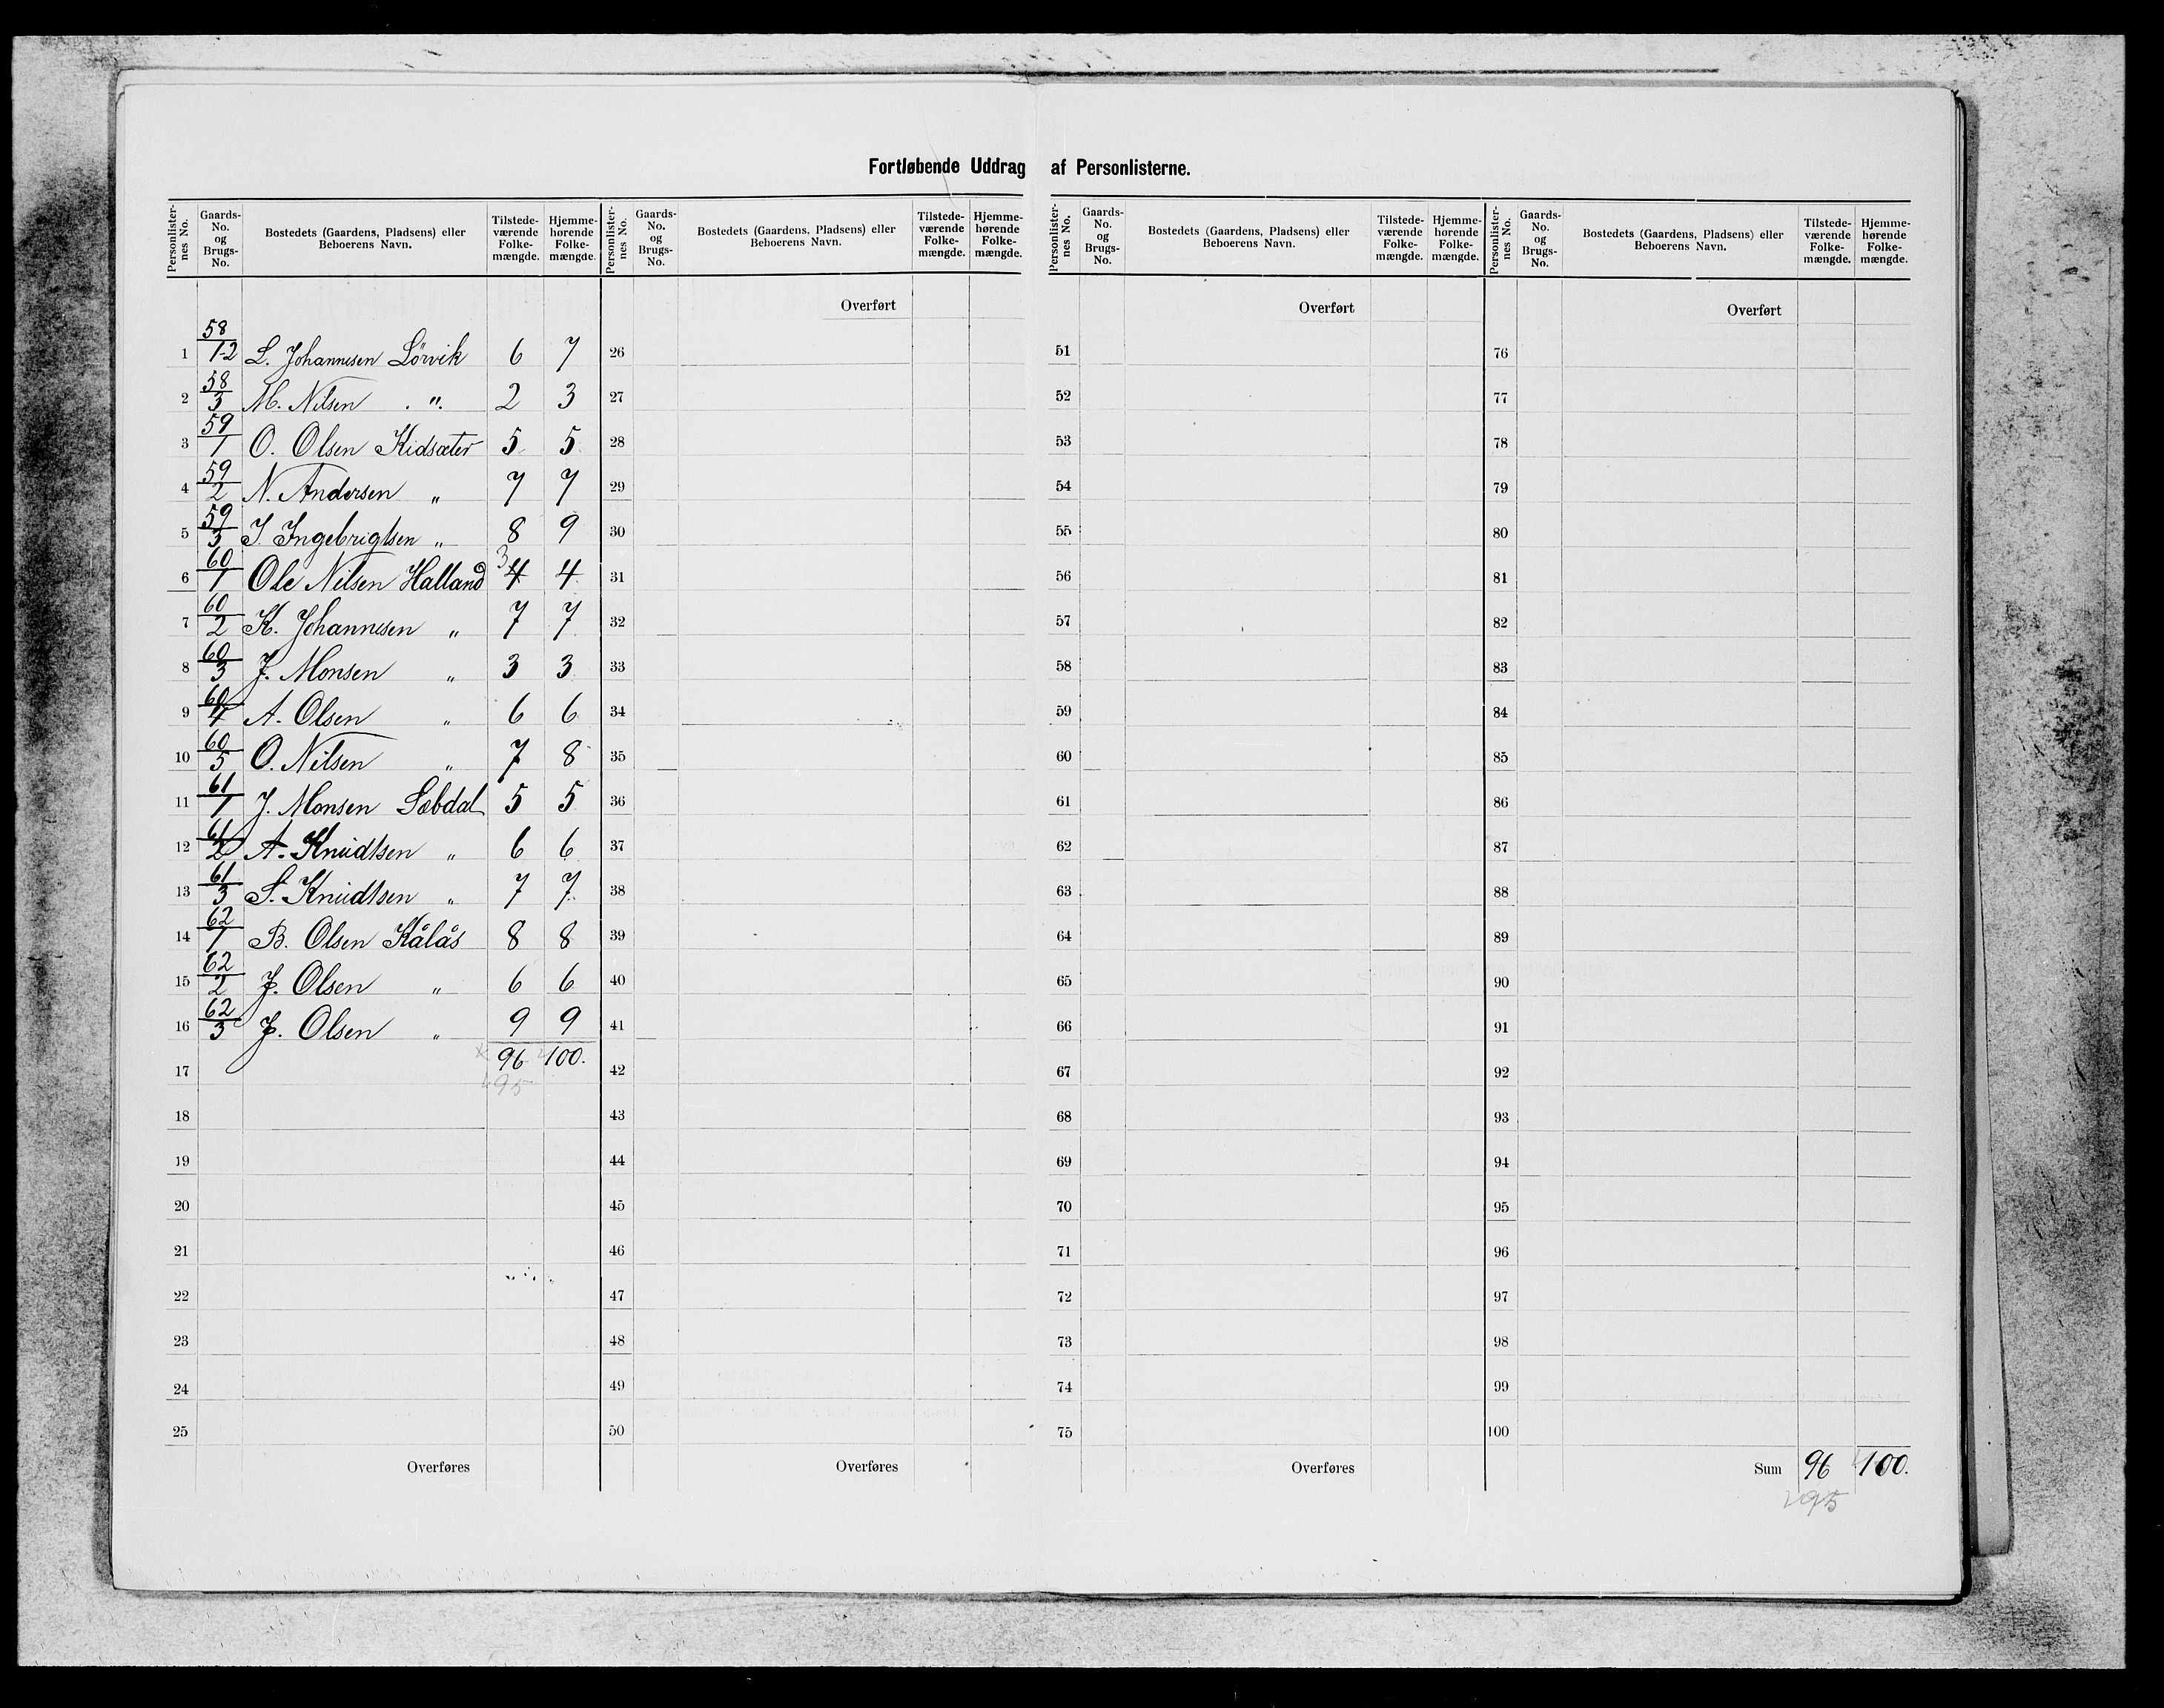 Fortløbende Uddrag af Personlisterne.
Personlister-nes No. Gaards-No. og Brugs-No. Bostedets (Gaardens, Pladsens) eller Beboerens Navn. Tilstede-værende Folke-mængde. Hjemme-hørende Folke-mængde.
1 58/1-2 L. Johannesen Lörvik 6 7
2 58/3 M. Nilsen . ". 2 3
3 59/1 O. Olsen Kidsæter 5 5
4 59/2 N. Andersen " 7 7
5 59/3 I. Ingebrigtsen " 8 9
6 60/1 Ole Nilsen Halland 3 4 4
7 60/2 K. Johannesen " 7 7
8 60/3 J. Monsen " 3 3
9 60/4 A. Olsen " 6 6
10 60/5 O. Nilsen " 7 8
11 61/1 J. Monsen Sæbdal 5 5
12 61/2 A. Knudtsen " 6 6
13 61/3 S. Knudtsen " 7 7
14 62/1 B. Olsen Kålås 8 8
15 62/2 J. Olsen " 6 6
16 62/3 J. Olsen " 9 9
17 96 100.
95
18
19
20
21
22
23
24
25
Overføres
Personlister-nes No. Gaards-No. og Brugs-No. Bostedets (Gaardens, Pladsens) eller Beboerens Navn. Tilstede-værende Folke-mængde. Hjemme-hørende Folke-mængde.
Overført
26
27
28
29
30
31
32
33
34
35
36
37
38
39
40
41
42
43
44
45
46
47
48
49
50
Overføres
Personlister-nes No. Gaards-No. og Brugs-No. Bostedets (Gaardens, Pladsens) eller Beboerens Navn. Tilstede-værende Folke-mængde. Hjemme-hørende Folke-mængde.
Overført
51
52
53
54
55
56
57
58
59
60
61
62
63
64
65
66
67
68
69
70
71
72
73
74
75
Overføres
Personlister-nes No. Gaards-No. og Brugs-No. Bostedets (Gaardens, Pladsens) eller Beboerens Navn. Tilstede-værende Folke-mængde. Hjemme-hørende Folke-mængde.
Overført
76
77
78
79
80
81
82
83
84
85
86
87
88
89
90
91
92
93
94
95
96
97
98
99
100
Sum 96 100.
95